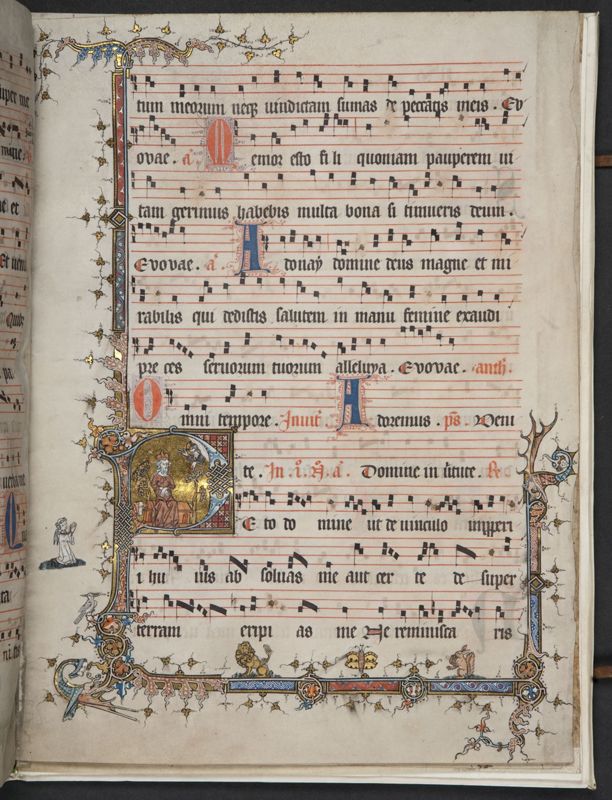 tum meorum neq; uindictam sumas de peccatis meis . Ev
ovae . a. Memor esto fi li quoniam pauperem ui
tam gerimus habebis multa bona si timueris deum .
Evovae . a. Adonay domine deus magne et mi
rabilis qui dedistis salutem in manu femine exaudi
pre ces seruorum tuorum alleluya . Evovae . anth.
Omni tempore . Inuit. Adoremus . ps. Veni
te . In i. N. a. Domine in uirtute . Re
Peto do mine ut de uinculo imperi
i hu ius ab soluas me aut cer te de super
terram eripi as me Ne reminisca ris